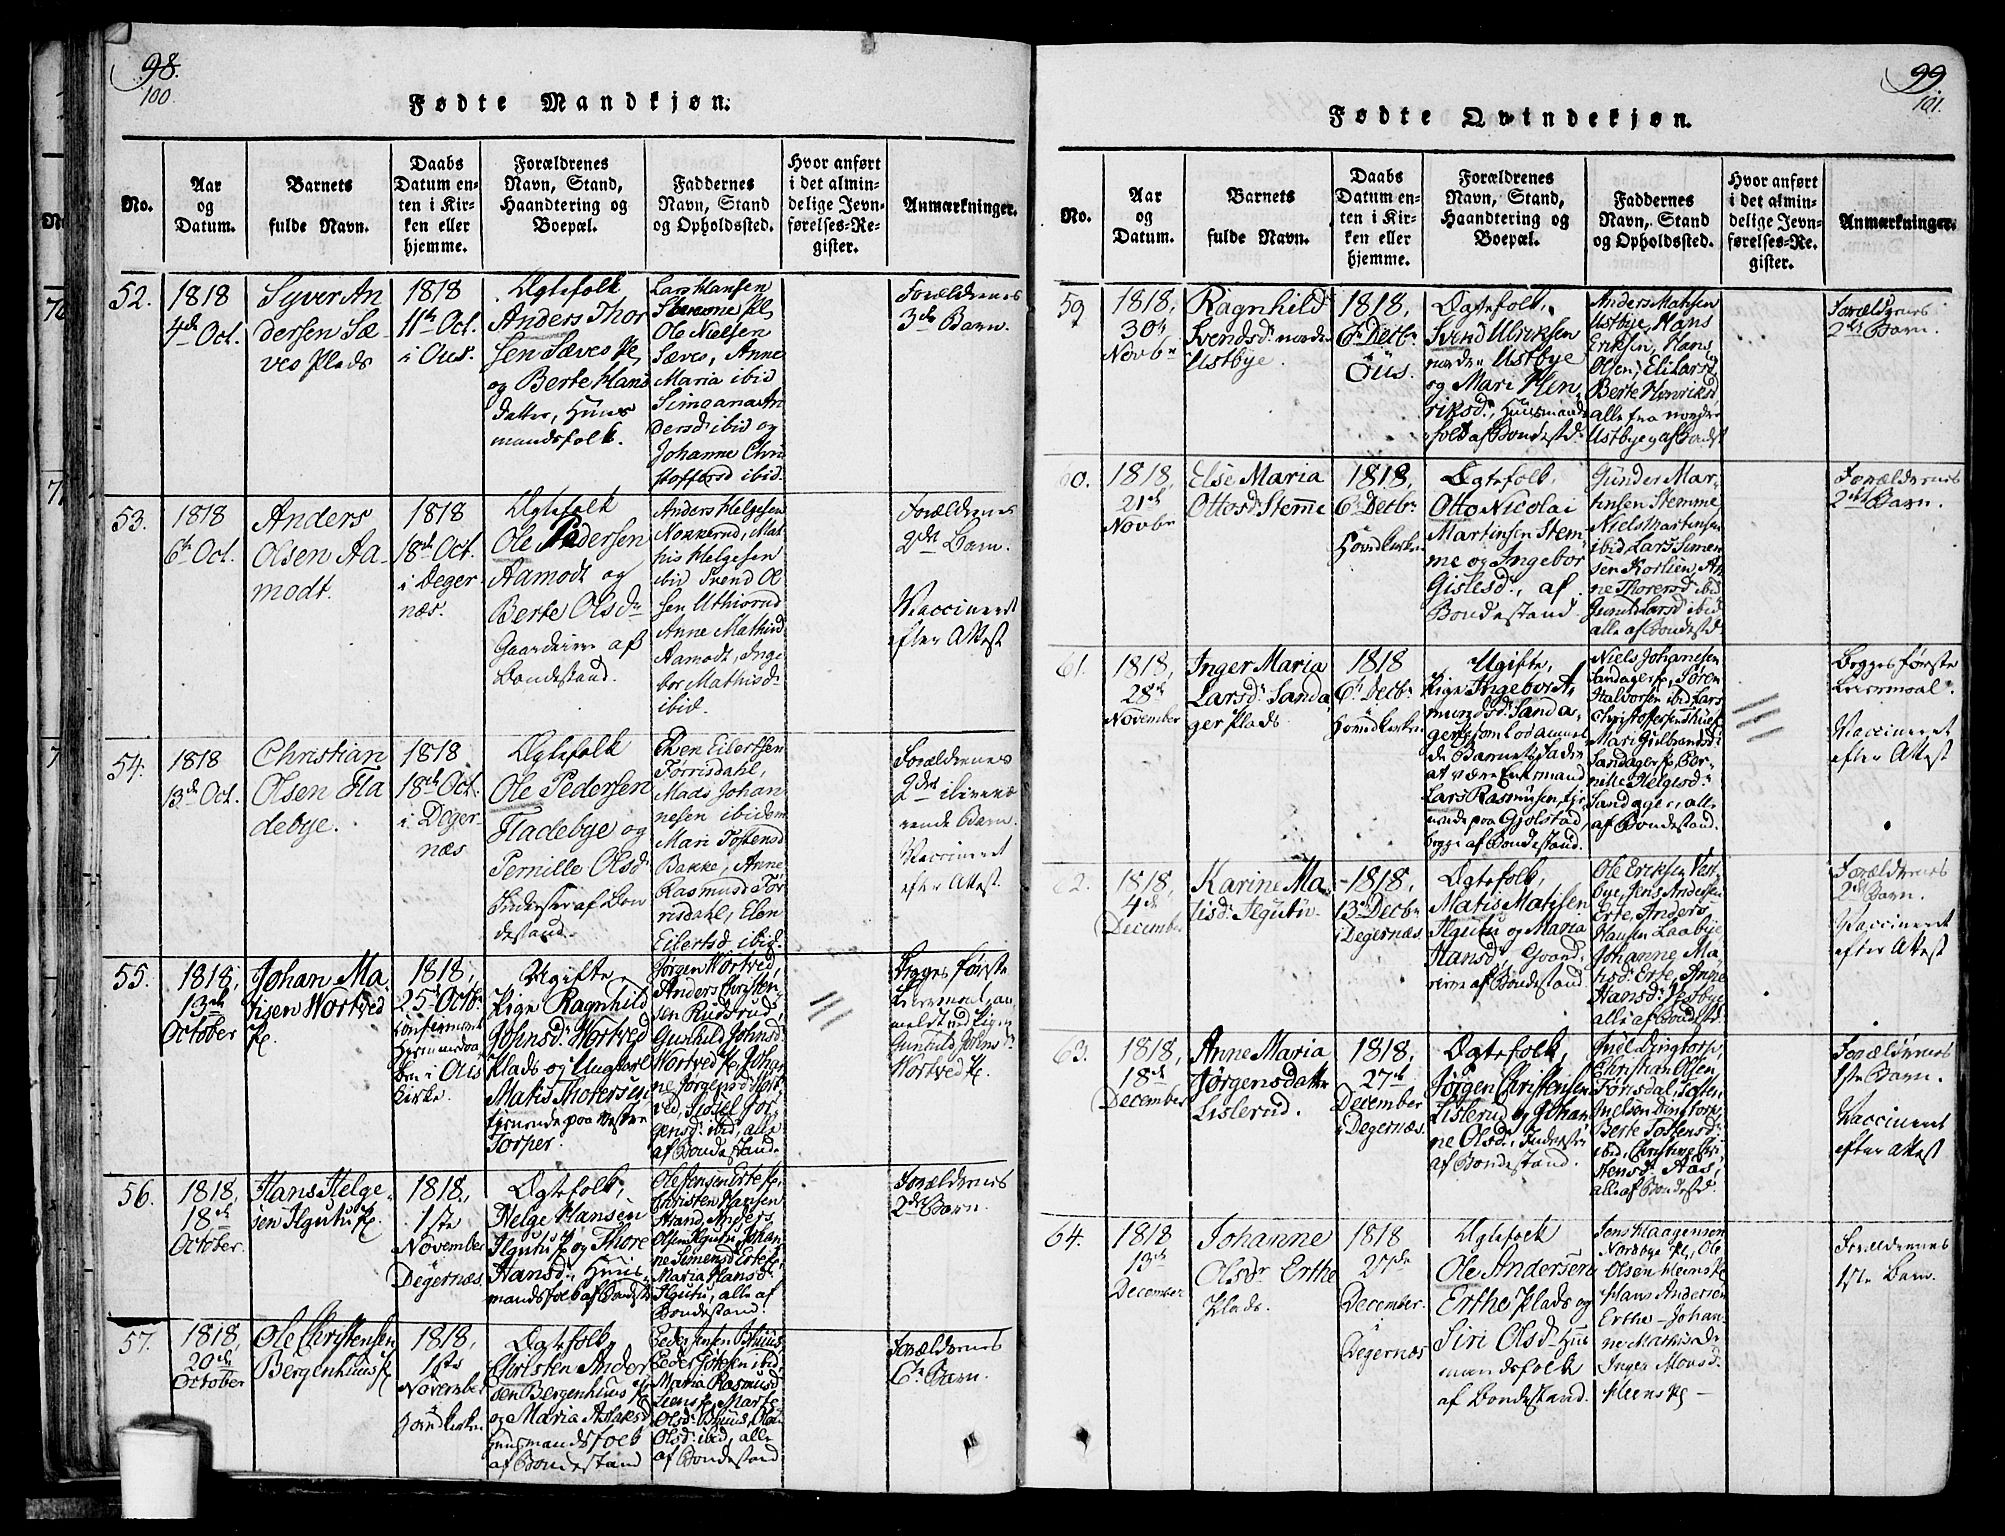 98.
100.
Fødte Mandkjøn.
No.
Aar
og
Datum.
Barnets
fulde Navn.
Daabs
Datum en-
ten i Kir-
ken eller
hjemme.
Forældrenes
Navn, Stand,
Haandtering og
Boepæl.
Faddernes
Navn, Stand
og Opholdssted.
Hvor anført
i det almin-
delige Jevn-
førelses-Re-
gister.
Anmærkninger.
52.
1818
4de Oct.
Syver An
dersen Sæ
ves Plads
1818
11te Oct.
i Ous.
Ægtefolk
Anders Thor
sen Sæves Pl
og Berte Hans
datter, Huus
mandsfolk.
Lars Hansen
Ole Nielsen
Sæves, Anne
Maria ibid
Simeana An
dersd ibid og
Johanne Chri
stoffersd ibid.
Forældrenes
3de Barn.
53.
1818
6te Oct.
Anders
Olsen Aa-
modt.
1818
18de Oct.
i Deger
næs.
Ægtefolk
Ole Pedersen
Aamodt og
Berte Olsd
Gaardeiere af
Bondestand.
Anders Helgesen
Mat
his Helgesen
ibid Svend Ol
sen
Anne Mathisd
Aamodt, Inge
bor Mathisd
ibid.
Forældrenes
2det Barn.
Vaccineret
efter Attest
54.
1818
13de Oct.
Christian
Olsen Fla
debye.
1818
18de Oct.
i Deger-
næs
Ægtefolk
Ole Pedersen
Fladebye og
Pernille Olsd
Inderster af Bon
destand.
Even Eilertsen
Torrisdahl,
Mads Johan
nesen ibidem
Mari Tostensd
Bakke, Anne
Rasmusd Tor
risdahl, Elen
Eilertsd ibid.
Forældrenes
2det ilivevæ
rende Barn.
Vaccineret
efter Attest.
55.
1818,
13de
October
Johan Ma-
tisen Wortved
Pl.
1818,
25de Octbr
i Ous
Kirke.
Ugifte
Pige Ragnhild
Johnsd. Wortved
Plads og Ungkarl
Matis Thorersen
tjenende paa Vestre
Torper.
Jørgen Wortved,
Anders Christen
sen Rudsrud,
Gunhild Johnsd.
Wortved Pl, Johan
ne Jørgensd Wort
ved, Sissel Jør
gensd. ibid, alle
af Bondestand.
Begges første
Leiermaal, an
meldt ved Pigen
Gunild Johnsd
Wortved Pl.
56.
1818,
18de
October.
Hans Helge-
sen Ilgutu Pl.
1818,
1ste
November
Degernæs.
Ægtefolk,
Helge Hansen
Ilgutu Pl og Thore
Hansd. Huus-
mandsfolk af Bondest
Ole Jensen Erte Pl,
Christen Hansen
Strand, Anders
Olsen Ilgutu, Johan
ne Simensd. Erte Pl,
Maria Hansd.
Ilgutu, alle af
Bondestand.
Forældrenes
2det Barn.
57.
1818,
20de
October
Ole Christensen
Bergenhuus Pl
1818,
1ste
November
Hovedkirken
Ægtefolk,
Christen Ander
sen Bergenhuus Pl
og Maria Aslaksd
Huusmandsfolk
af Bondestand
Peder Jensen Bruus
ibid,
Maria Rasmusd
Marthe
Olsd. Bruus, Ole
Olsd. ibid, alle
af Bondestand
Forældrenes
6te Barn.
99
101.
Fødte Qvindekjøn.
No.
Aar
og
Datum.
Barnets
fulde Navn.
Daabs
Datum en-
ten i Kir-
ken eller
hjemme.
Forældrenes
Navn, Stand,
Haandtering og
Boepæl.
Faddernes
Navn, Stand
og Opholdssted.
Hvor anført
i det almin-
delige Jevn-
førelses-Re-
gister.
Anmærkninger.
59
1818,
30te
Novbr
Ragnhild
Svendsd. nordre
Ustbye.
1818,
6te Decbr
Ous.
Ægtefolk,
Svend Ulriksen
nordre Ustbye
og Mari Hen
riksd., Huusmands
folk af Bondestd.
Anders Matisen
Ustbye, Hans
Eriksen, Hans
Olsen, Eli Larsd
Berte Henriksd
alle fra nordre
Ustbye, af Bondst
Forældrenes
2det Barn.
60.
1818,
21de
Novbr
Else Maria
Ottosd. Stemme
1818,
6te Decbr
Hovedkirken
Ægtefolk,
Otto Nicolai
Martinsen Stem-
me og Ingebor
Gislesd., af
Bondestand
Gunder Mar
tinsen Stemme,
Niels Martinsen
ibid Lars Simen
sen Korlien, An
ne Thorersd. ibid
Gunild Larsd. ibid
alle af Bondestd
Forældrenes
2det Barn.
61.
1818,
28de
November
Inger Maria
Larsd. Sanda
ger Plads.
1818
6te Decbr
Hovedkirken
Ugifte,
Pige Ingebor A-
mundsd. Sanda-
ger, som lod anmel
de Barnets Fader
at være Enkemand
Lars Rasmusen, tje-
nende paa Gjolstad,
begge af Bondestand.
Niels Johanesen
Sandager Pl, Søren
Halvorsen ibid, Lars
Christoffersen
Mari Gulbrandsd.
Sandager Pl, Per-
nille Helgesd.
Sandager, alle
af Bondestand.
Begges første
Leiermaal.
Vaccineret
efter Attest
62.
1818,
4de
December
Karine Ma-
tisd. Ilgutu
1818,
13de Decbr
i Degernæs.
Ægtefolk,
Matis Matisen
Ilgutu og Maria
Hansd. Gaard-
eiere af Bondestand.
Ole Eriksen Vest-
bye, Jens Andersen
Erte, Anders
Hansen Laabye
Johanne Ma-
tisd. Erte, Inge
Hansd. Vestbye
alle af Bondestd.
Forældrenes
2det Barn.
Vaccineret
efter Attest
63.
1818,
18de
December
Anne Maria
Jørgensdatter
Lislerud.
1818,
27de
December
i Degernæs.
Ægtefolk,
Jørgen Christensen
Lislerud og Johan
ne Olsd., Inderster
af Bondestand.
Christian Olsen
Torrisdal, Tosten
Berte Tostensd.
ibid, Christine Chri
stensd. Aas,
alle af Bondestd.
Forældrenes
1ste Barn.
Vaccineret
efter Attest
64.
1818
13de
December
Johanne
Olsdr Erthe
Plads.
1818
27de
December
i
Degernæs
Ægtefolk
Ole Andersen
Erthe Plads og
Siri Olsd. Huus
mandsfolk
af Bondestand.
Jens Haagensen
Nordbye Pl, Ole
Olsen Heens Pl
Hans Andersen
Erthe - Johan-
ne Mathisd
Inger Monsd.
Heens Pl -
Forældrenes
1ste Barn.